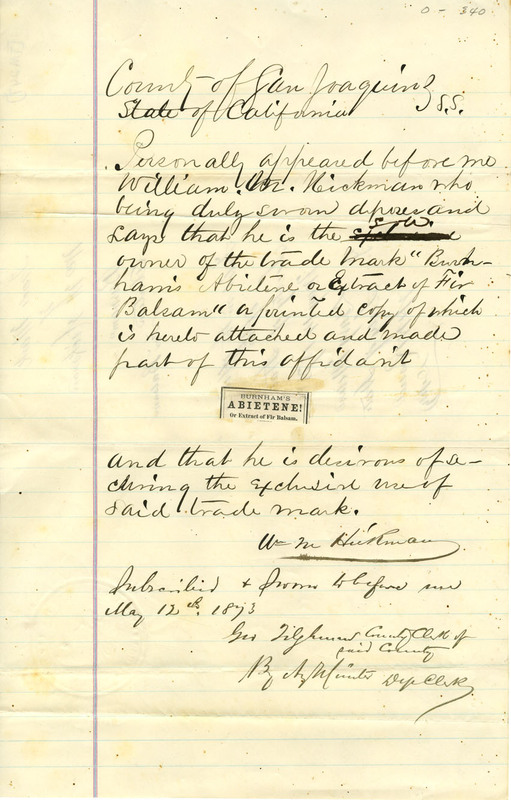 0 - 340
County of San Joaquin
State of California } S.S.
Personally appeared before me
William. M. Hickman who
being duly sworn deposes and
says that he is the sole
owner of the trade mark "Burn-
ham's Abietene or Extract of Fir
Balsam" a printed copy of which
is hereto attached and made
part of this affidavit
BURNHAM'S
ABIETENE!
Or Extract of Fir Balsam.
and that he is desirous of se-
curing the exclusive use of
said trade mark.
Wm M Hickman
Subscribed & Sworn to before me
May 12th. 1873
Geo Tilghman County Clerk of
said County
By Dep Clerk